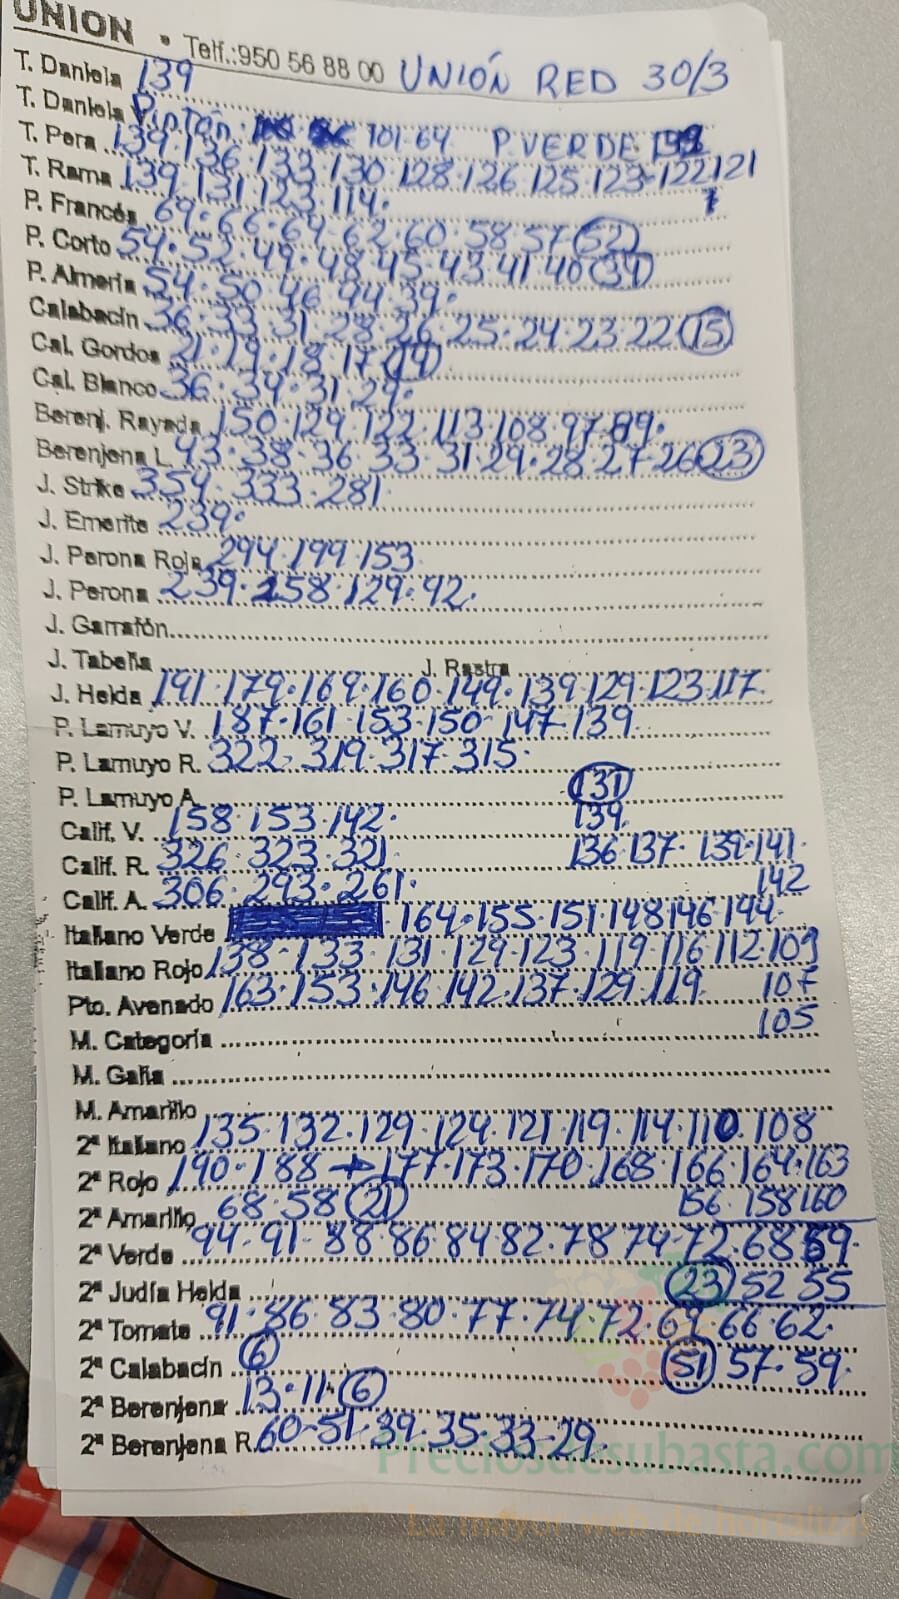 UNION • Telf.:950 56 88 00 UNIÓN RED 30/3
T. Daniela 139
T. Daniela Pintón. 101-64. P. VERDE.
T. Pera 139·136·133·130·128·126·125·123-122 121
T. Rama 139·131·123·114.
P. Francés 69·66·64·62·60·58·57 (52)
P. Corto 54·52·49·48·45·43·41·40 (34)
P. Almería 54·50·46·44·39·
Calabacín 36·33·31·28·26·25·24·23·22 (15)
Cal. Gordos 21·19·18·17 (14)
Cal. Blanco 36·34·31·29·
Berenj. Rayada 150·129·122·113·108·97·89·
Berenjena L. 43·38·36·33·31·29·28·27·26 (23)
J. Strike 354·333·281·
J. Emerite 239·
J. Perona Roja 294·199·153
J. Perona 239·158·129·92·
J. Garrafón
J. Tabella J. Rastra
J. Helda 191·179·169·160·149·139·129·123·117.
P. Lamuyo V. 187·161·153·150·147·139.
P. Lamuyo R. 322·319·317·315·
P. Lamuyo A. (131)
Calif. V. 158·153·142· 139.
Calif. R. 326·323·321 136·137·139·141·
Calif. A. 306·293·261· 142
Italiano Verde 164·155·151·148·146·144·
Italiano Rojo 138·133·131·129·123·119·116·112·109
Pto. Avenado 163·153·146·142·137·129·119. 107
M. Categoría 105
M. Galia
M. Amarillo
2ª Italiano 135·132·129·124·121·119·114·110·108
2ª Rojo 190·188 → 177·173·170·168·166·164·163
2ª Amarillo 68·58 (21) 156·158 160
2ª Verde 94·91·88·86·84·82·78 74·72·68 59·
2ª Judía Helda (23) 52 55
2ª Tomate 91·86·83·80·77·74·72·69·66·62·
2ª Calabacín (6) (51) 57·59·
2ª Berenjena 13·11·(6)
2ª Berenjena R. 60-51·39·35·33-29·
Preciosdesubasta.com
La mayor web de hortalizas